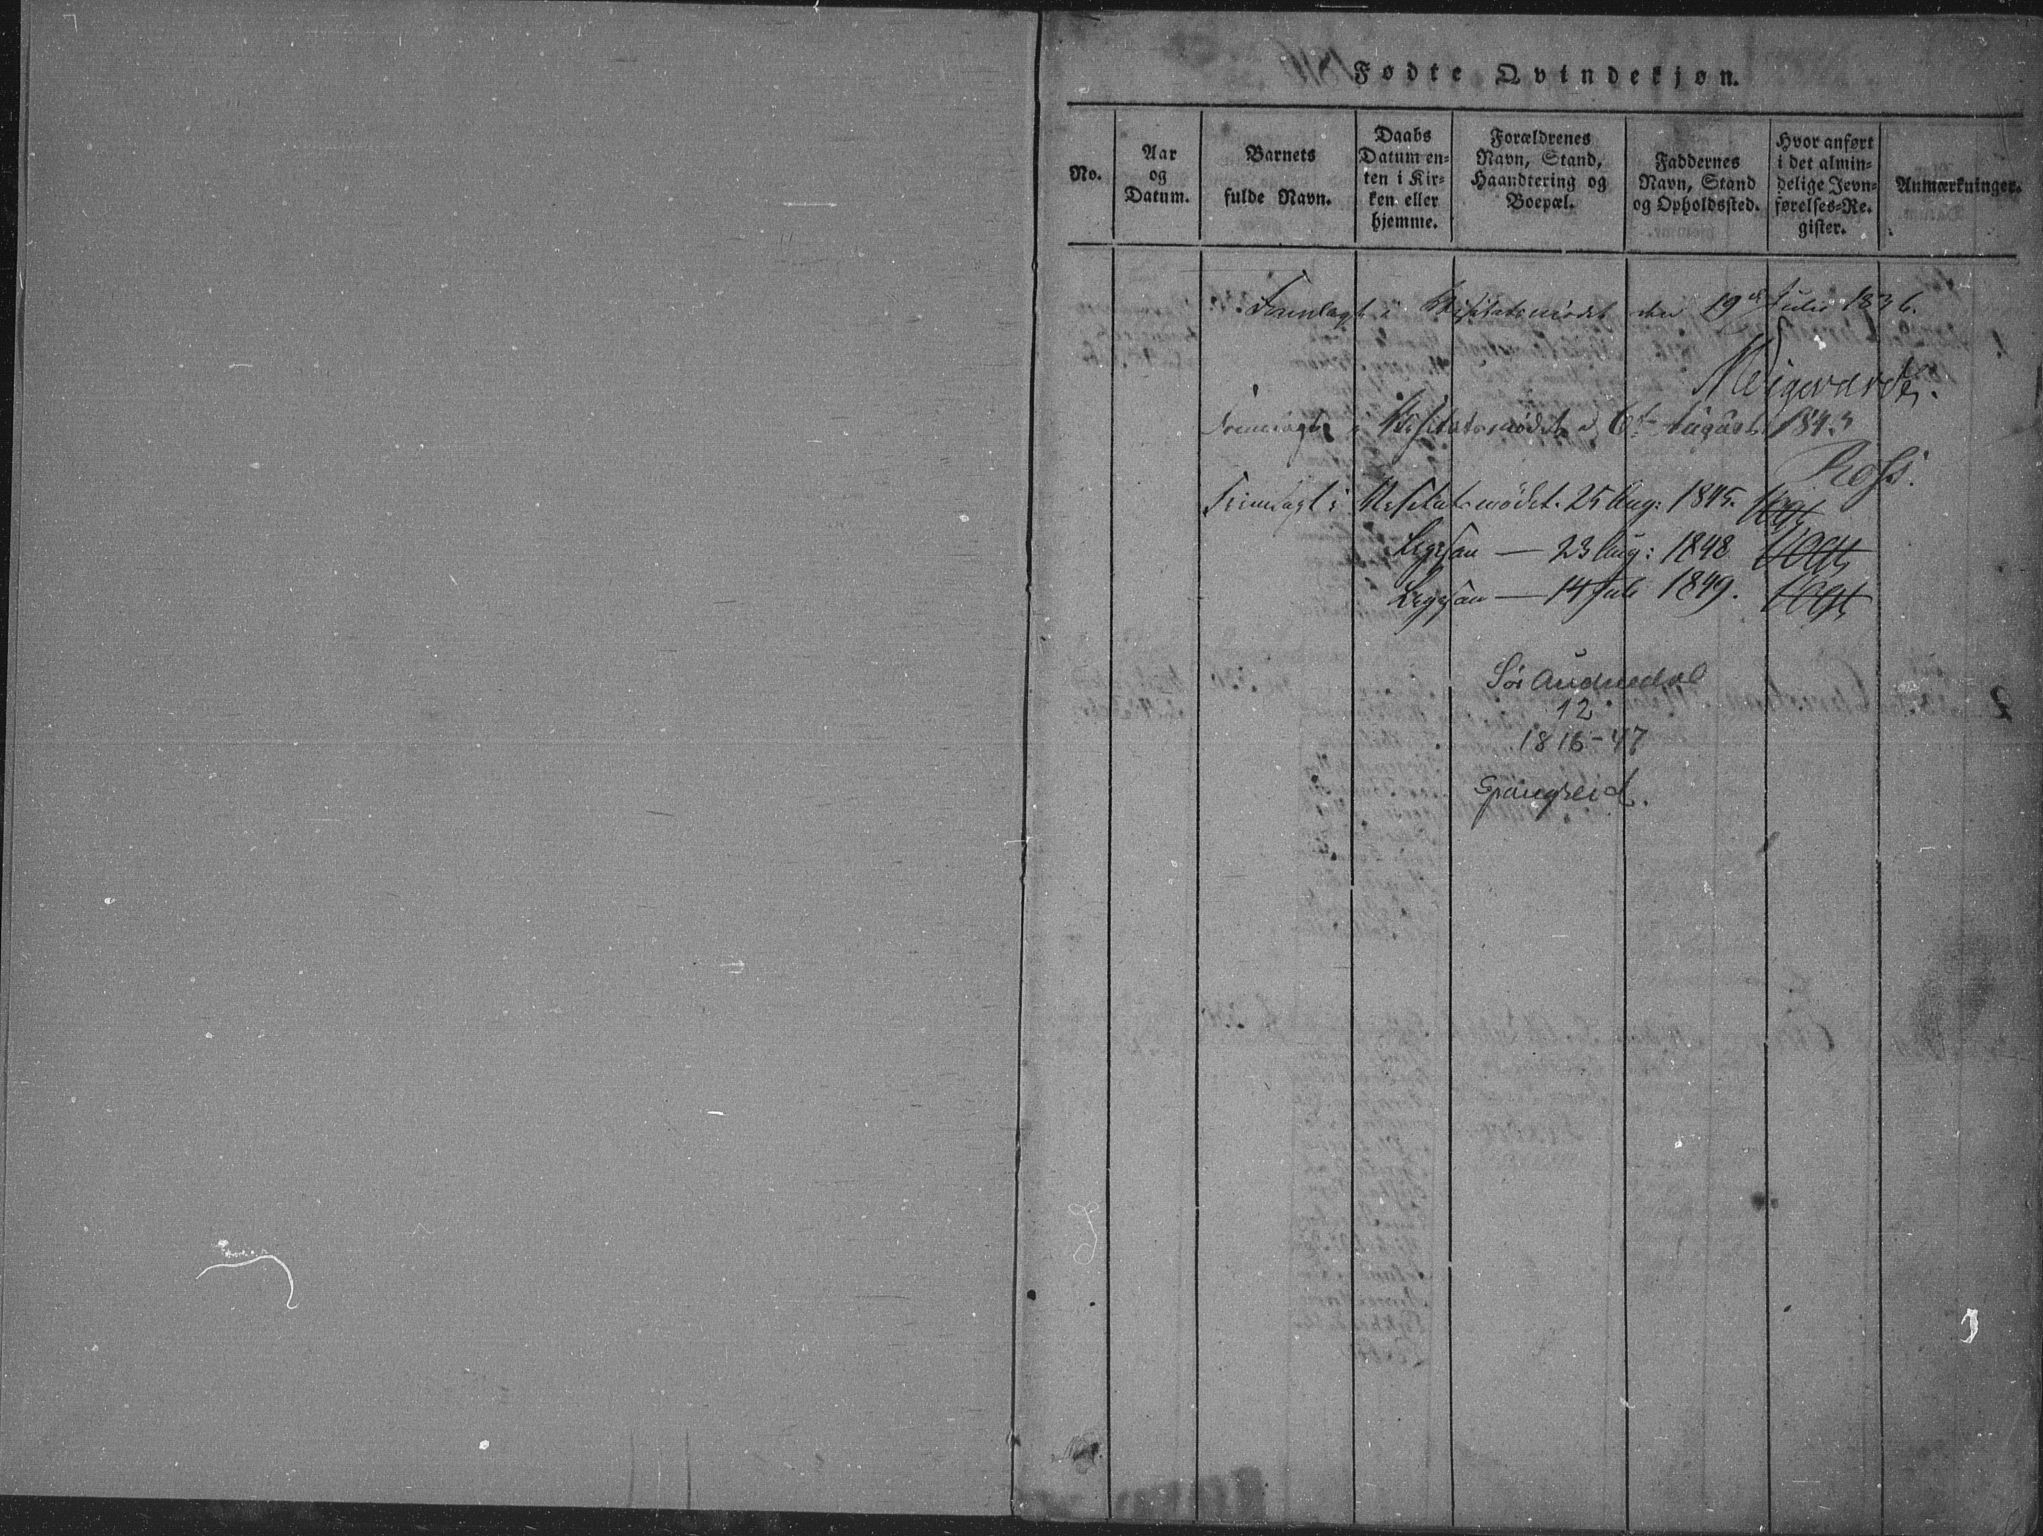 Fødte Qvindekjøn.
No.
Aar
og
Datum.
Barnets
fulde Navn.
Daabs
Datum en-
ten i Kir-
ken eller
hjemme.
Forældrenes
Navn, Stand,
Haandtering og
Boepæl.
Faddernes
Navn, Stand
og Opholdssted.
Hvor anført
i det almin-
delige Jevn-
førelses-Re-
gister.
Anmærkninger.
Fremlagt i Visitatsmødet den 19de Julii 1836.
Fremlagt i Visitatsmødet d 6te August 1843
Fremlagt i Visitatsmødet. 25 Aug: 1845. Vogt
Ligesaa — 23 Aug: 1848 Vogt
Ligesaa — 14 Juli 1849. Vogt
Sør Audnedal
12
1816-47
Spangreid.